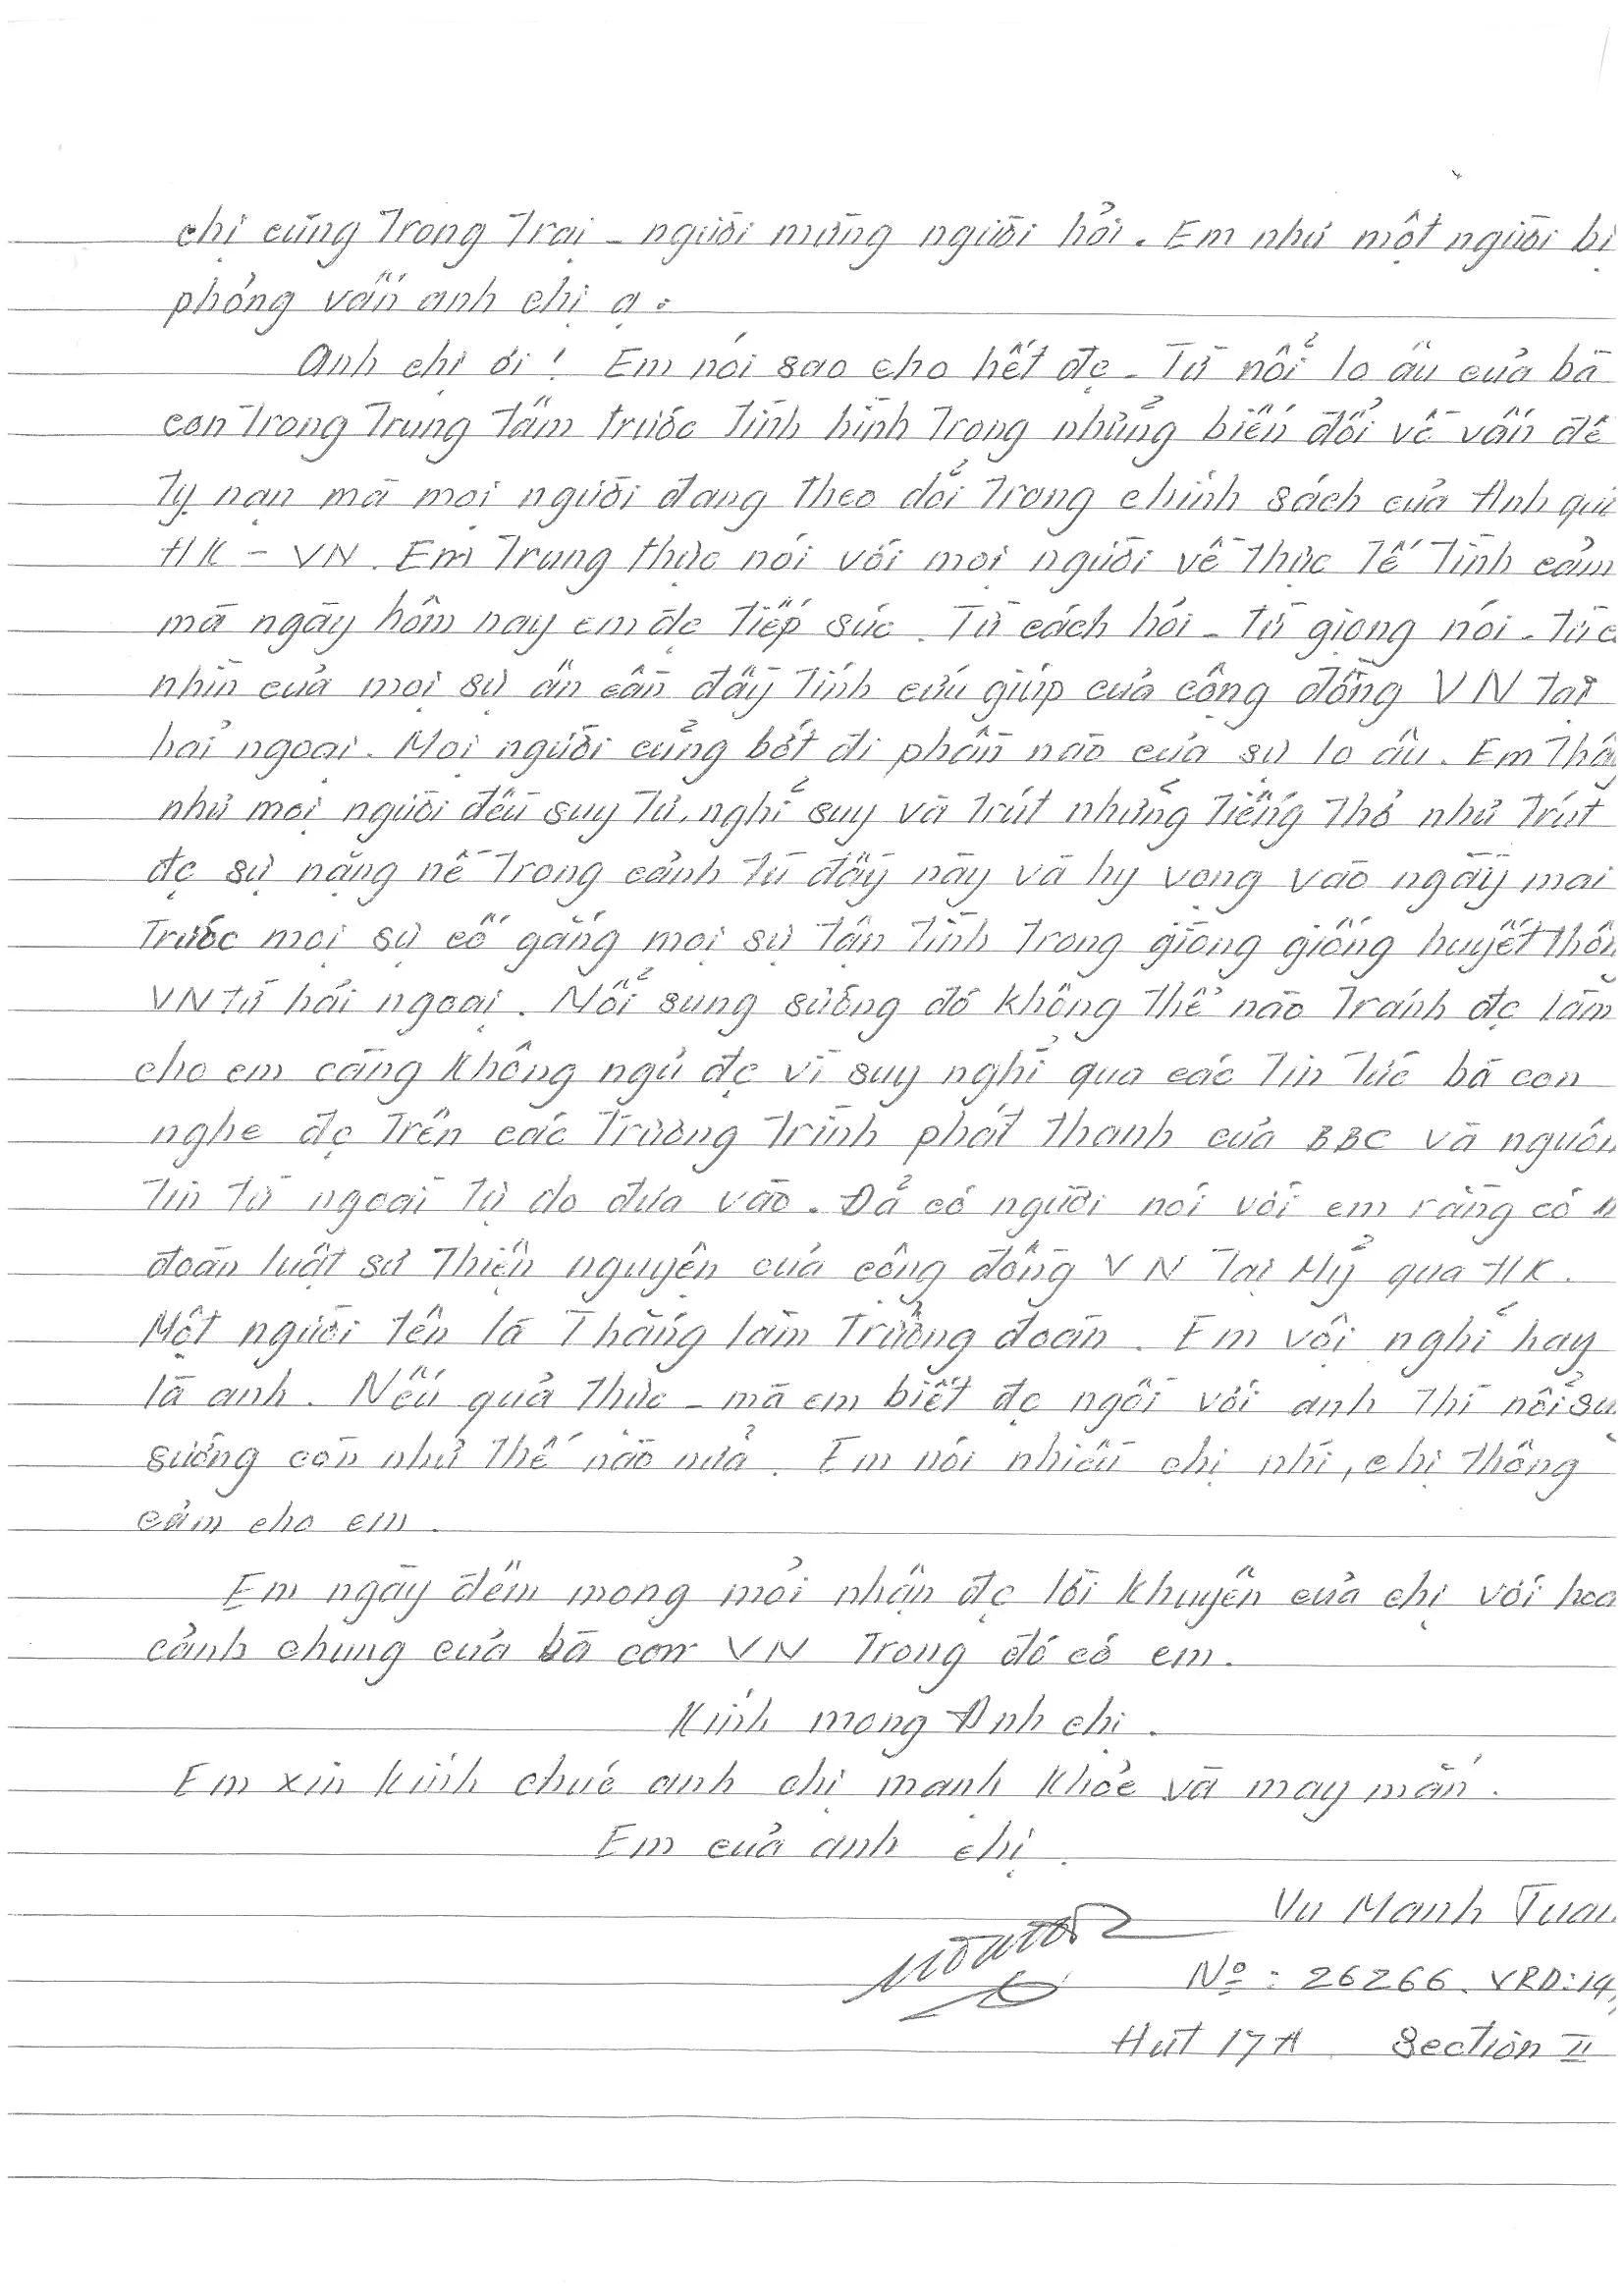 chị cùng trong trại - người mừng người hỏi. Em như một người bị
phỏng vấn anh chị ạ.
Anh chị ơi! Em nói sao cho hết đc - Từ nỗi lo âu của bà
con trong trung tâm trước tình hình trong những biến đổi về vấn đề
tỵ nạn mà mọi người đang theo dõi trong chính sách của Anh quốc
HK - VN. Em trung thực nói với mọi người về thực tế tình cảm
mà ngày hôm nay em đc tiếp súc. Từ cách hỏi - từ giọng nói - từ c
nhìn của mọi sự ân cần đầy tính cứu giúp của cộng đồng VN tại
hải ngoại. Mọi người cũng bớt đi phần nào của sự lo âu. Em thấ
như mọi người đều suy tư, nghĩ suy và trút những tiếng thở như trút
đc sự nặng nề trong cảnh tù đầy này và hy vọng vào ngày mai
trước mọi sự cố gắng mọi sự tận tình trong giòng giống huyết thôn
VN từ hải ngoại. Nỗi sung sướng đó không thể nào tránh đc làm
cho em càng không ngủ đc vì suy nghĩ qua các tin tức bà con
nghe đc trên các trương trình phát thanh của BBC và nguồn
tin từ ngoài tự do đưa vào. Đã có người nói với em rằng có
đoàn luật sư thiện nguyện của cộng đồng VN tại Mỹ qua HK.
Một người tên là Thắng làm trưởng đoàn. Em vội nghĩ hay
là anh. Nếu quả thực - mà em biết đc ngồi với anh thì nỗi su
sướng còn như thế nào nữa. Em nói nhiều chị nhỉ, chị thông
cảm cho em.
Em ngày đêm mong mỏi nhận đc lời khuyên của chị với hoà
cảnh chung của bà con VN trong đó có em.
Kính mong Anh chị.
Em xin kính chúc anh chị mạnh khỏe và may mắn.
Em của anh chị
Vu Manh Tuan
Nº: 26266. VRD: 14,
Hut 17A Section II